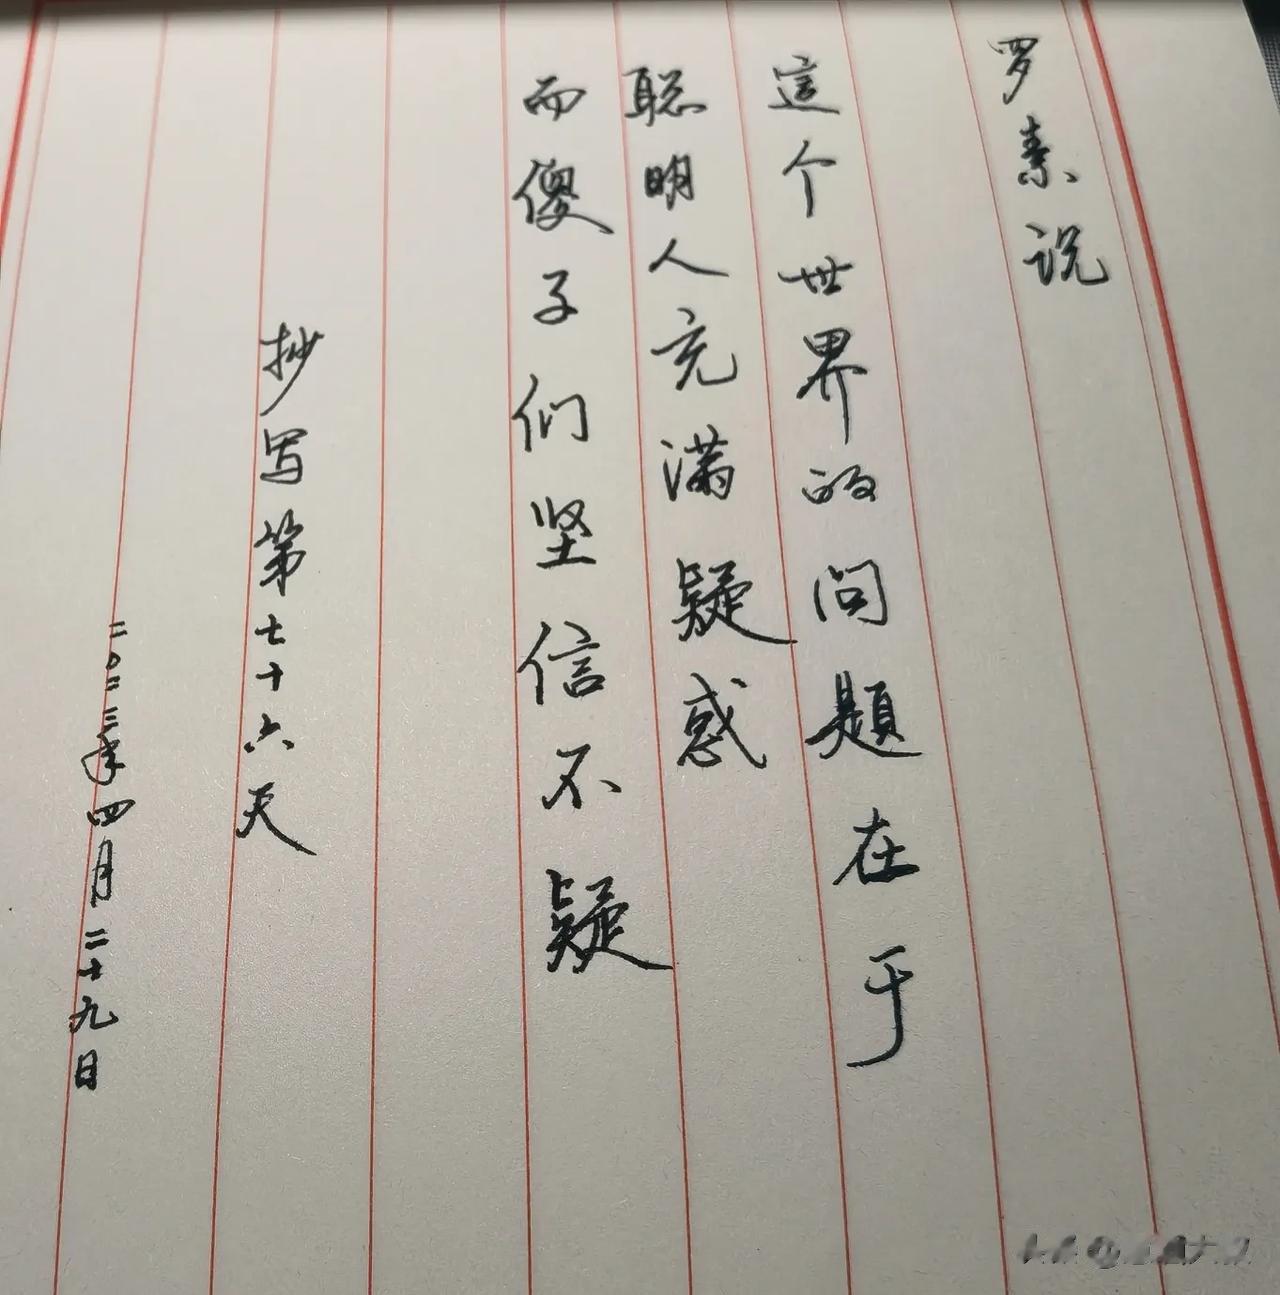 罗素说
這个世界的问题在于
聪明人充满疑惑
而傻子们坚信不疑
抄写第七十六天
二〇二三年四月二十九日